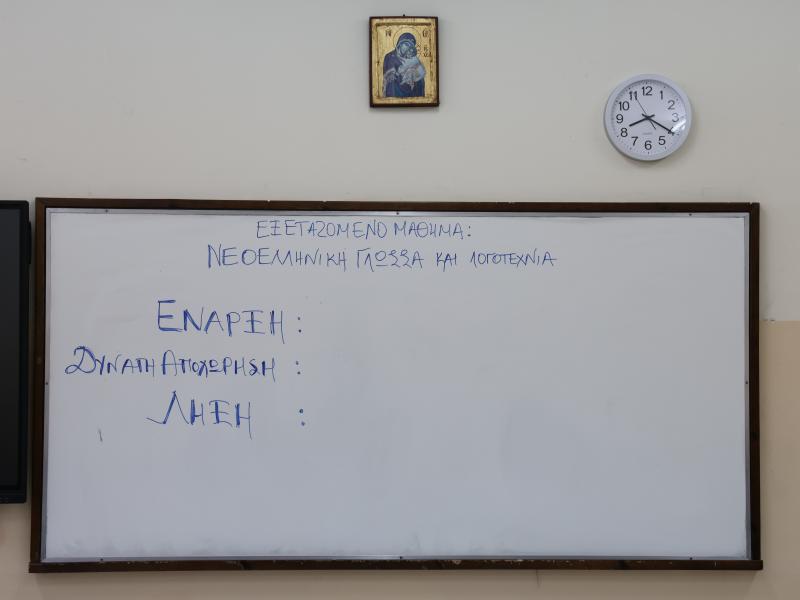 12
1
2
3
4
5
6
7
8
9
10
11
ΕΞΕΤΑΖΟΜΕΝΟ ΜΑΘΗΜΑ:
ΝΕΟΕΛΛΗΝΙΚΗ ΓΛΩΣΣΑ ΚΑΙ ΛΟΓΟΤΕΧΝΙΑ
ΕΝΑΡΞΗ :
ΔΥΝΑΤΗ ΑΠΟΧΩΡΗΣΗ :
ΛΗΞΗ :